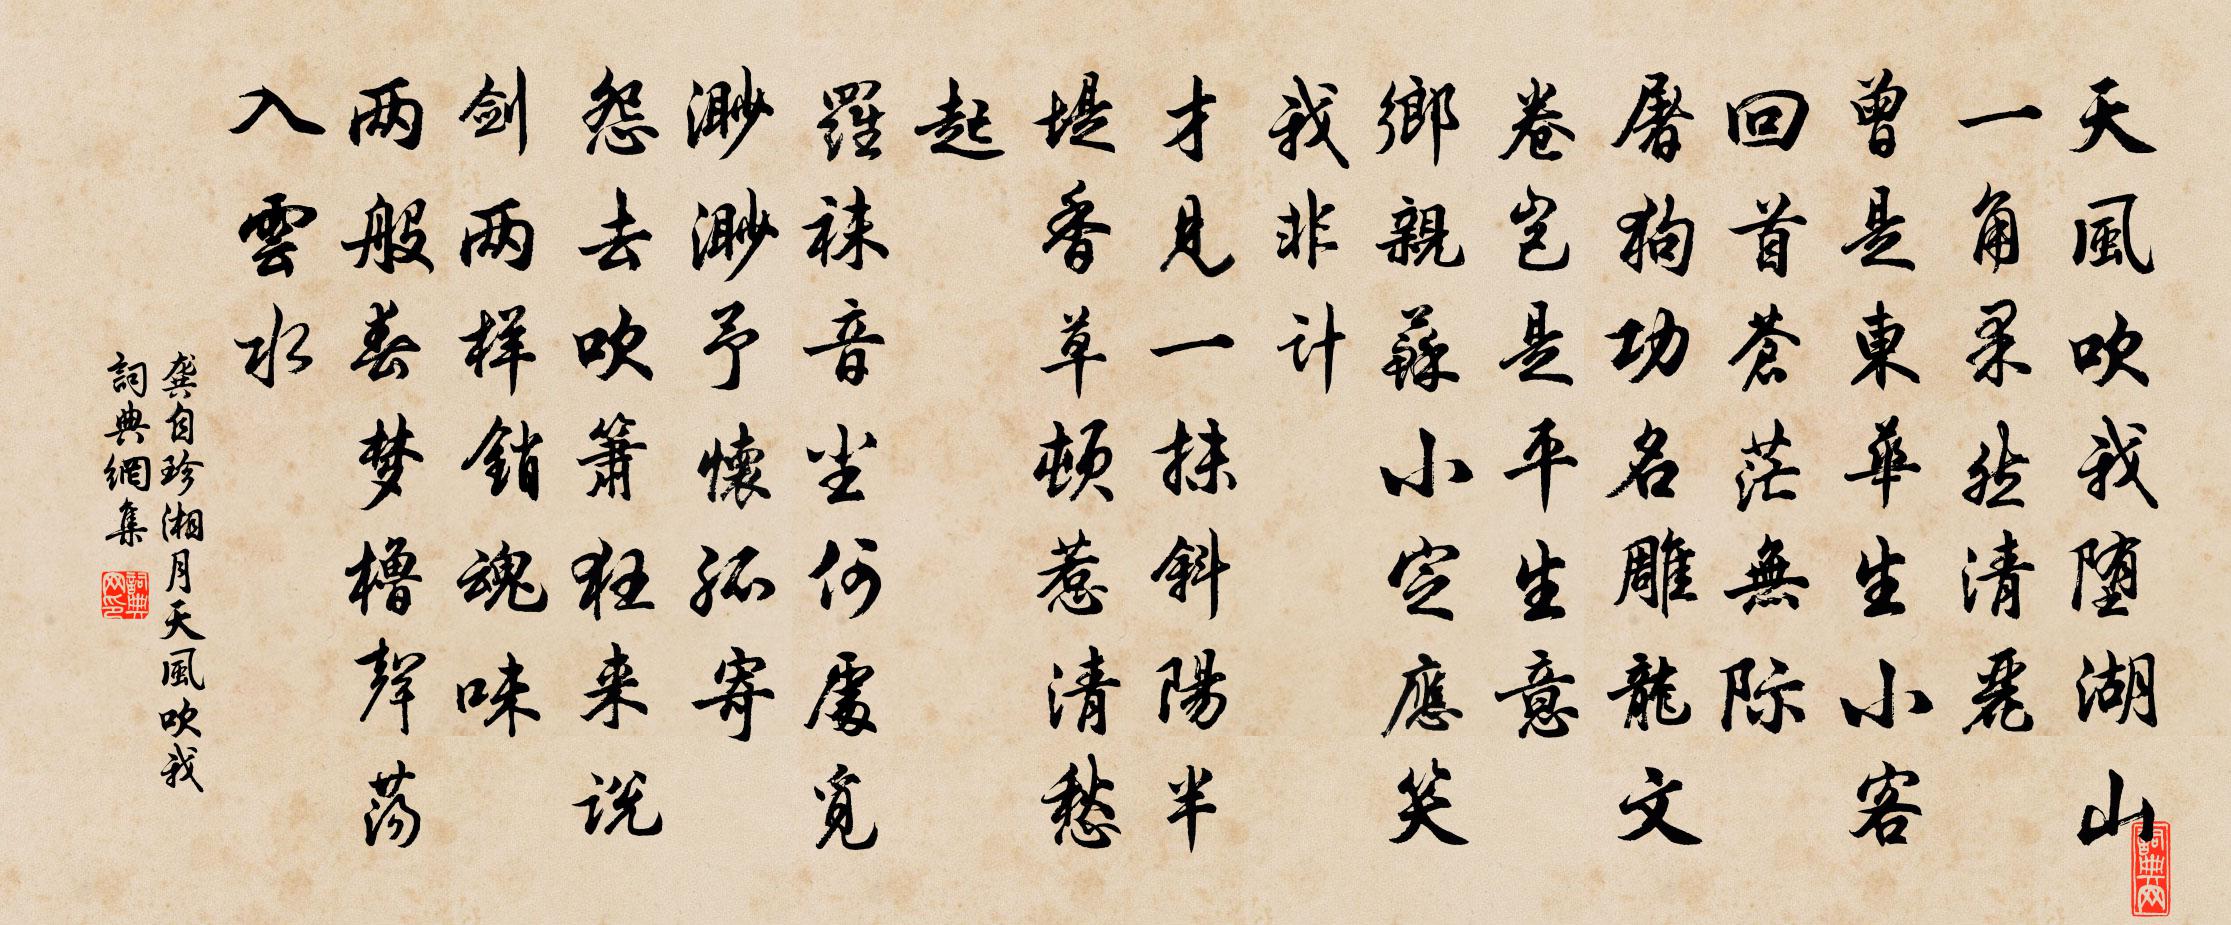 天風吹我堕湖山
一角果然清麗
曾是東華生小客
回首蒼茫無际
屠狗功名雕龍文
卷岂是平生意
鄉親蘇小定應笑
我非计
才見一抹斜陽半
堤香草頓惹清愁
起
羅袜音尘何處覓
渺渺予懷孤寄
怨去吹簫狂来说
剑两样銷魂味
两般春梦櫓聲荡
入雲水
龚自珍湘月天風吹我
詞典網集
詞典网印
詞典网